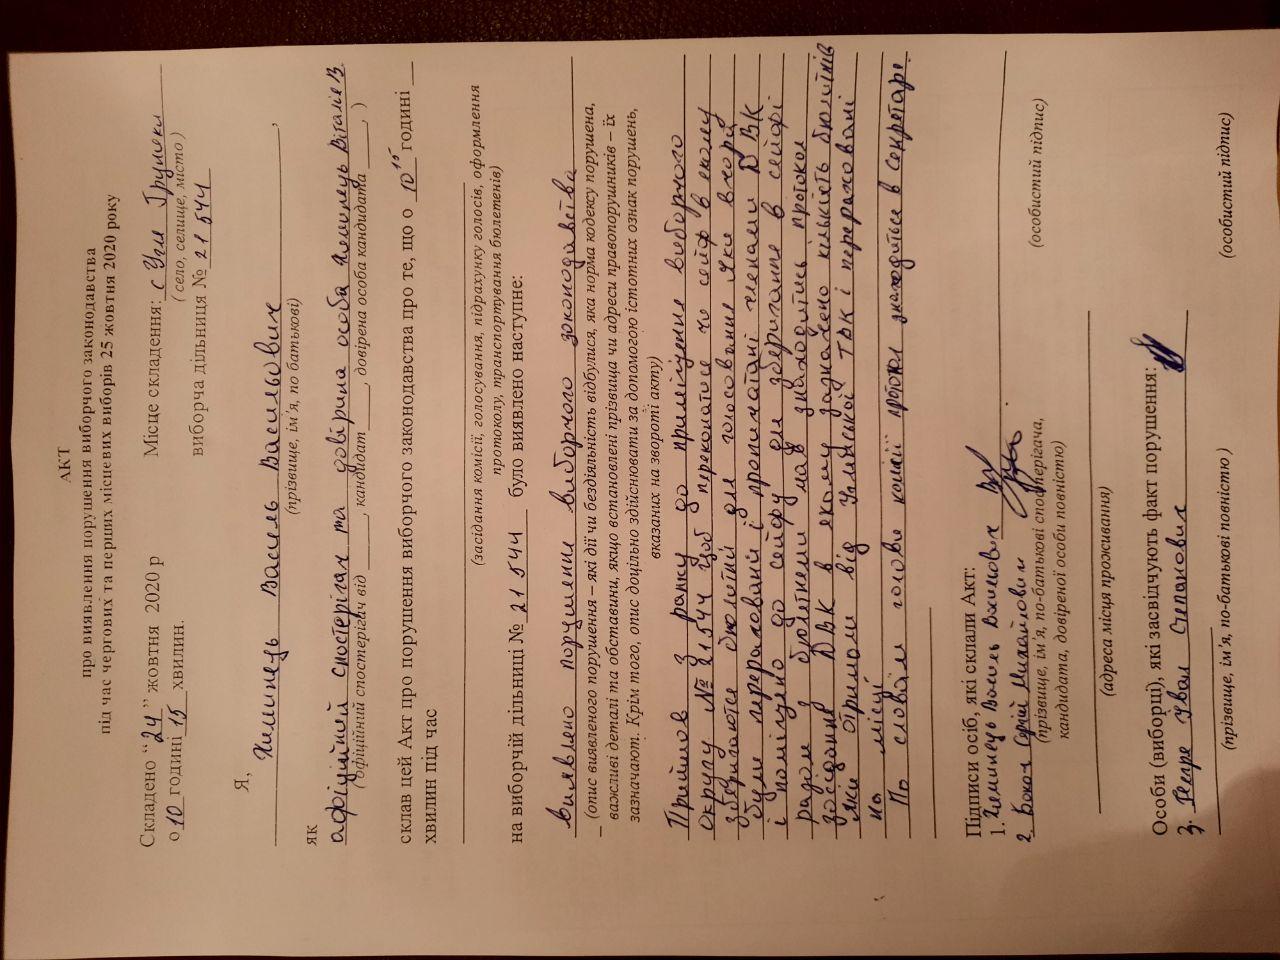 АКТ
про виявлення порушення виборчого законодавства
під час чергових та перших місцевих виборів 25 жовтня 2020 року
Складено “24” жовтня 2020 р Місце складення: с Угля Грушеки
о 10 годині 15 хвилин. ( село, селище, місто )
виборча дільниця № 21 544
Я, Химинець Василь Васильович ,
(прізвище, ім’я, по батькові)
як
офіційний спостерігач та довірена особа Віталія В.
(офіційний спостерігач від ____, кандидат ____, довірена особа кандидата ____, )
склав цей Акт про порушення виборчого законодавства про те, що о 10 15 годині __
хвилин під час
(засідання комісії, голосування, підрахунку голосів, оформлення
протоколу, транспортування бюлетенів)
на виборчій дільниці № 21 544 було виявлено наступне:
виявлено порушення виборчого законодавства
_ (опис виявленого порушення – які дії чи бездіяльність відбулися, яка норма кодексу порушена,
важливі деталі та обставини, якщо встановлені прізвища чи адреси правопорушників – їх
зазначають. Крім того, опис доцільно здійснювати за допомогою істотних ознак порушень,
вказаних на звороті акту)
Прийшов з ранку до приміщення виборчого
округу № 21544 щоб переконатися чи сейф в якому
зберігаються бюлетні для голосування яке вчора
були перераховані і членами ДВК
і поміщено до сейфу для зберігання в сейфі
радом з бюлетнями мав знаходитись протокол
засідання ДВК в якому зазначено кількість бюлетнів
яке отримали від ТВК і перераховані
на місці
По словам голови комісії протокол знаходиться в секретаря.
Підписи осіб, які склали Акт:
1. Химинець Василь
2. Бокоч Сергій Михайлович
(прізвище, ім’я, по-батькові спостерігача, (особистий підпис)
кандидата, довіреної особи повністю)
(адреса місця проживання)
Особи (виборці), які засвідчують факт порушення:
3. Степанович
(прізвище, ім’я, по-батькові повністю ) (особистий підпис)